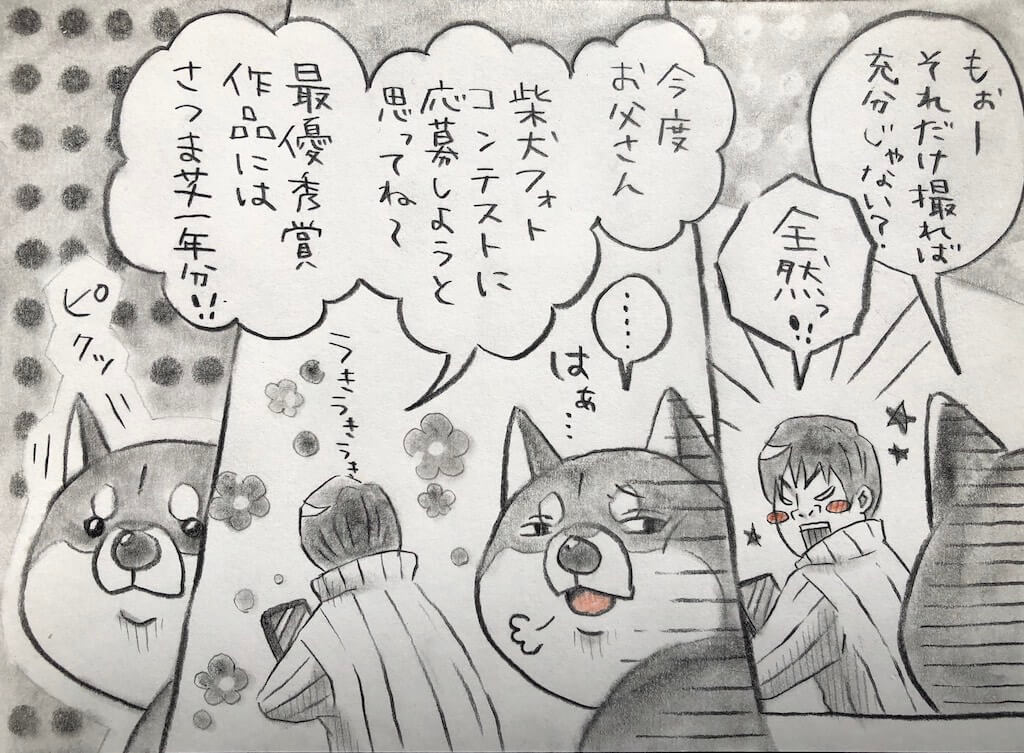 もぉー
それだけ撮れば
充分じゃない?
全然っ!!
……
はぁ…
今度
お父さん
柴犬フォト
コンテストに
応募しようと
思ってね〜
うきうきうきうき
最優秀賞
作品には
さつま芋一年分!!
ピクッ